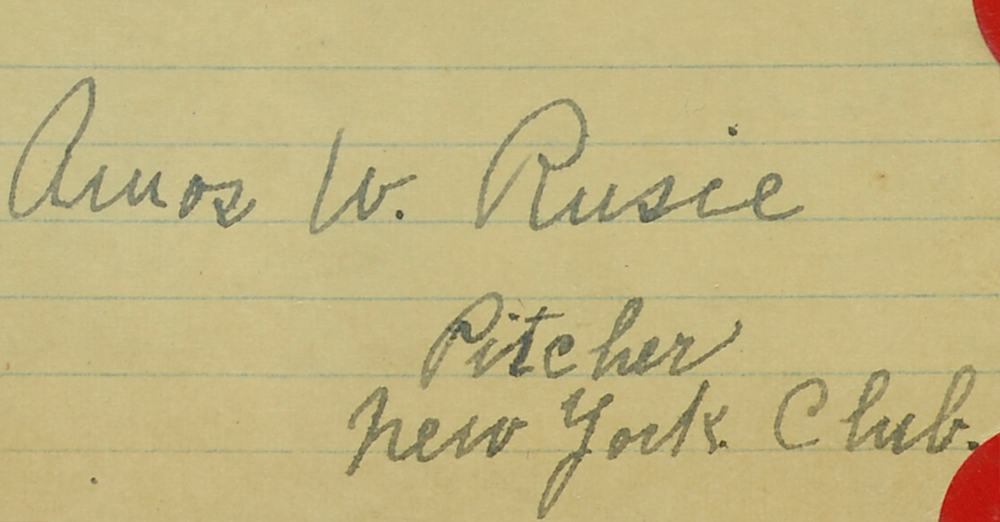 Amos W. Rusie
Pitcher
New York Club.